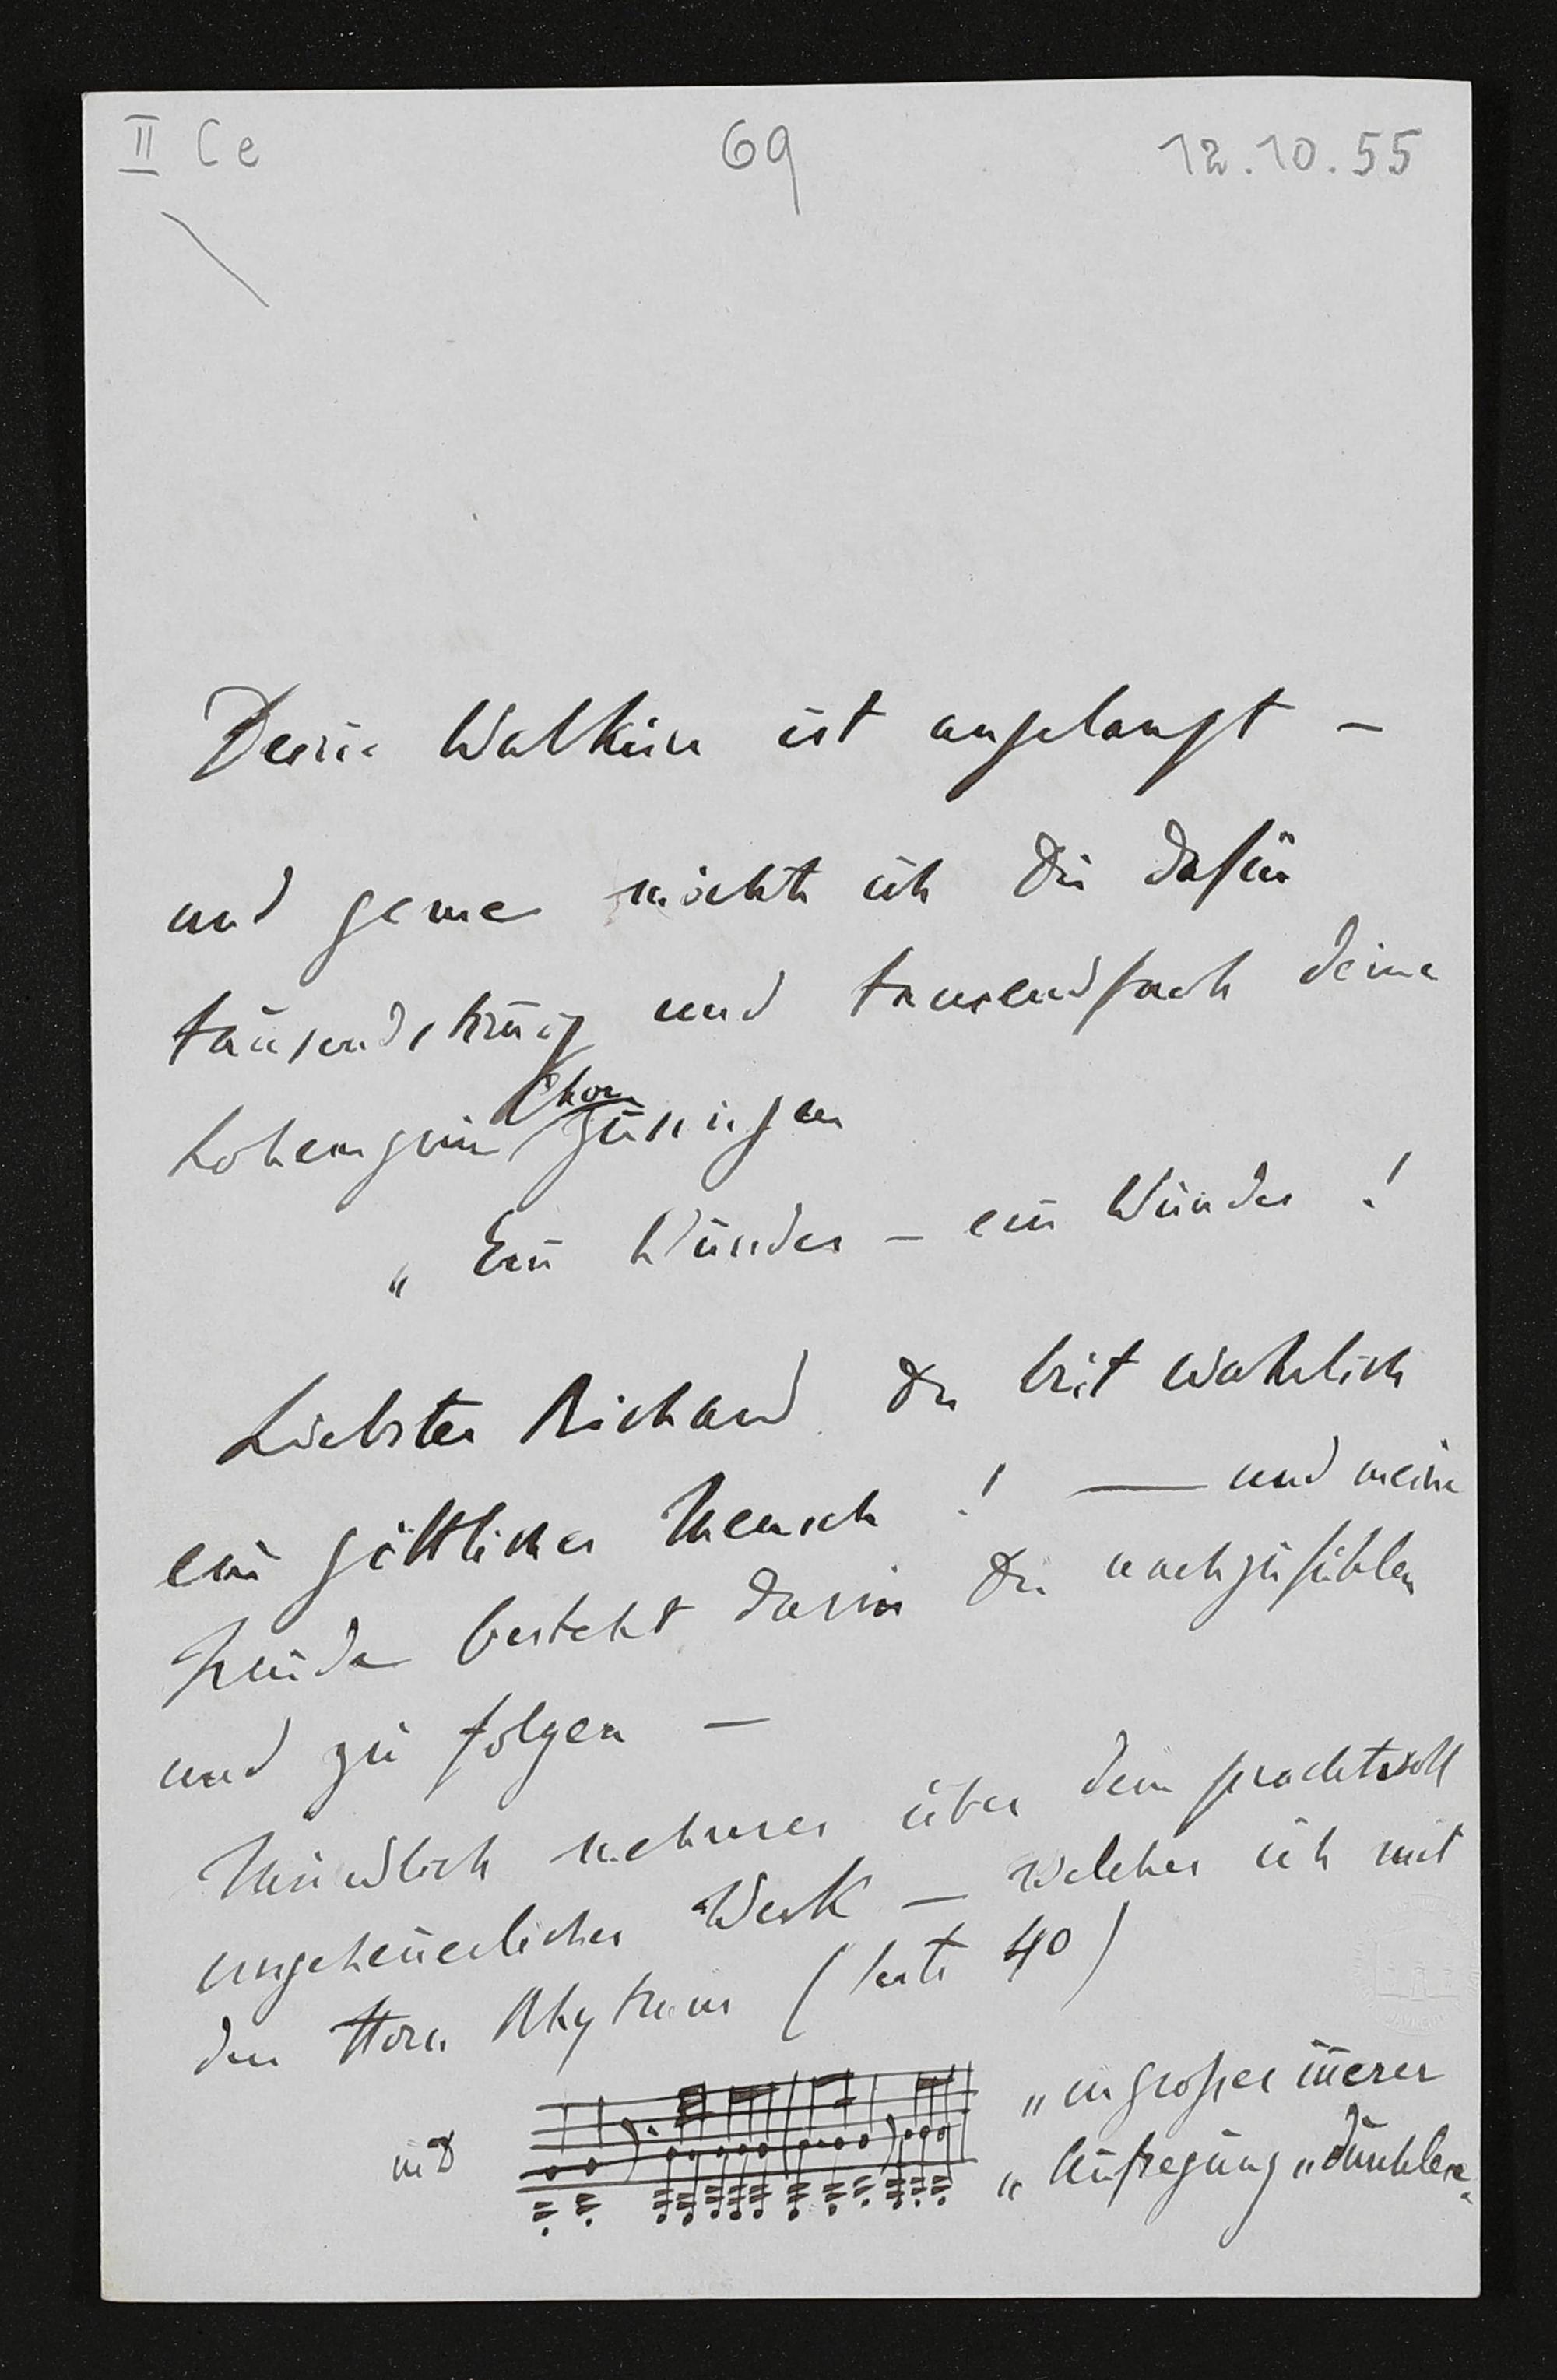 II Ce 69 12.10.55
Deine Walküre ist angelangt –
und gerne möchte ich Dir dafür
tausendstimmig und tausendfach deinen
Lohengrin Chor zusingen
„ Ein Wunder – ein Wunder !
Liebster Richard du bist wahrlich
ein göttlicher Mensch ! — und meine
Freude besteht darin Dir nachzufühlen
und zu folgen –
Mündlich mehreres über dein prachtvoll
ungeheuerliches Werk – welches ich mit
den Horn Rhythmus (Seite 40)
in D „in großer innerer
„ Aufregung „ durchlese.